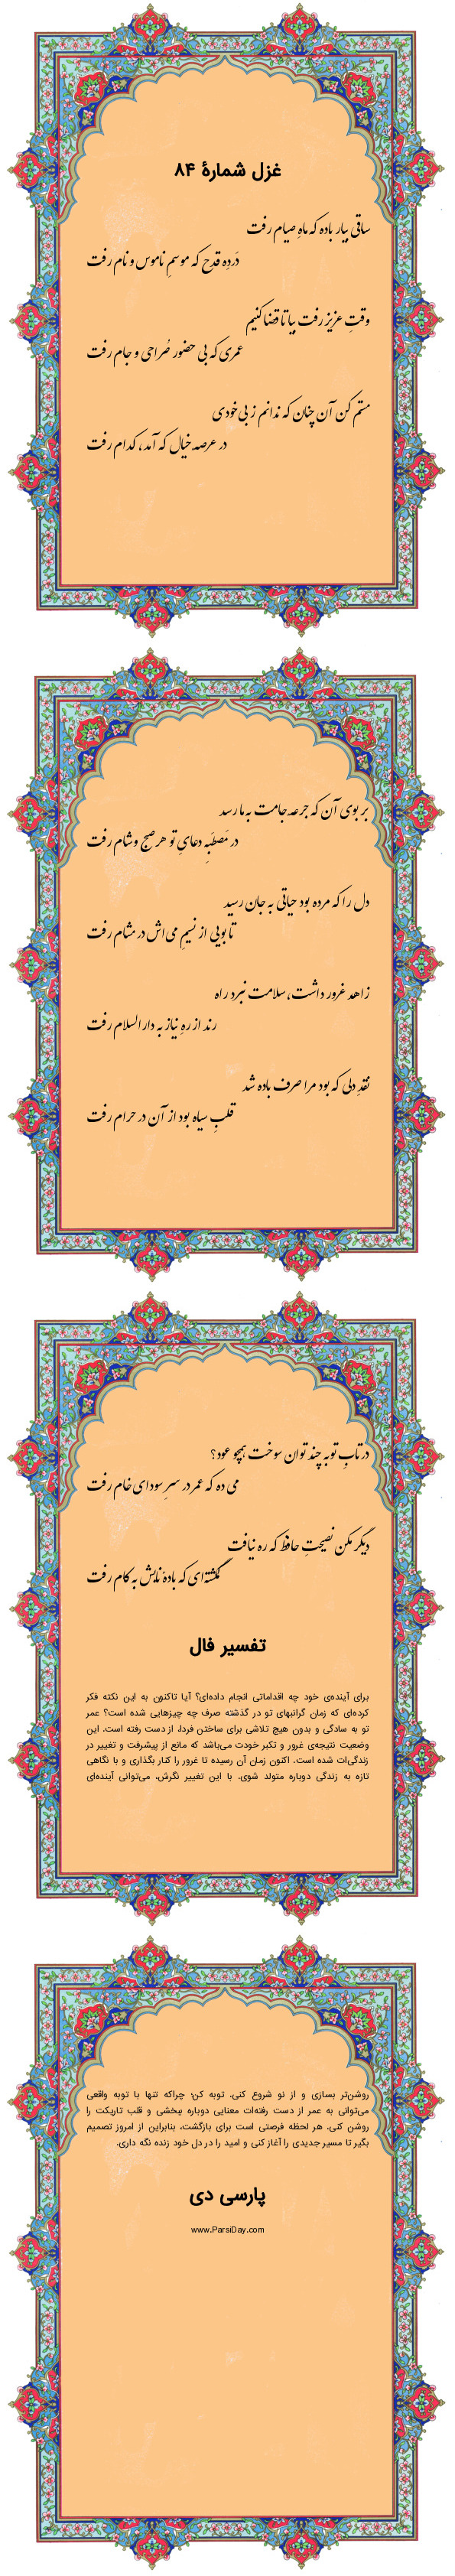 غزل شمارهٔ ۸۴
ساقی بیار باده که ماهِ صیام رفت
دَردِه قدح که موسمِ ناموس و نام رفت
وقتِ عزیز رفت بیا تا قضا کنیم
عمری که بی حضورِ صُراحی و جام رفت
مستم کن آن چنان که ندانم ز بی‌خودی
در عرصه خیال که آمد، کدام رفت
بر بوی آن که جرعه جامت به ما رسد
در مَصطَبِه دعایِ تو هر صبح و شام رفت
دل را که مرده بود حیاتی به جان رسید
تا بویی از نسیمِ می‌اش در مشام رفت
زاهد غرور داشت، سلامت نبرد راه
رند از رهِ نیاز به دارالسلام رفت
نقدِ دلی که بود مرا صرف باده شد
قلبِ سیاه بود از آن در حرام رفت
در تابِ توبه چند توان سوخت همچو عود؟
می ده که عمر در سرِ سودای خام رفت
دیگر مکن نصیحتِ حافظ که ره نیافت
گمگشته‌ای که بادهٔ نابش به کام رفت
تفسیر فال
برای آینده‌ی خود چه اقداماتی انجام داده‌ای؟ آیا تاکنون به این نکته فکر
کرده‌ای که زمان گرانبهای تو در گذشته صرف چه چیزهایی شده است؟ عمر
تو به سادگی و بدون هیچ تلاشی برای ساختن فردا، از دست رفته است. این
وضعیت نتیجه‌ی غرور و تکبر خودت می‌باشد که مانع از پیشرفت و تغییر در
زندگی‌ات شده است. اکنون زمان آن رسیده تا غرور را کنار بگذاری و با نگاهی
تازه به زندگی دوباره متولد شوی. با این تغییر نگرش، می‌توانی آینده‌ای
روشن‌تر بسازی و از نو شروع کنی. توبه کن؛ چراکه تنها با توبه واقعی
می‌توانی به عمر از دست رفته‌ات معنایی دوباره ببخشی و قلب تاریکت را
روشن کنی. هر لحظه فرصتی است برای بازگشت، بنابراین از امروز تصمیم
بگیر تا مسیر جدیدی را آغاز کنی و امید را در دل خود زنده نگه داری.
پارسی دی
www.ParsiDay.com